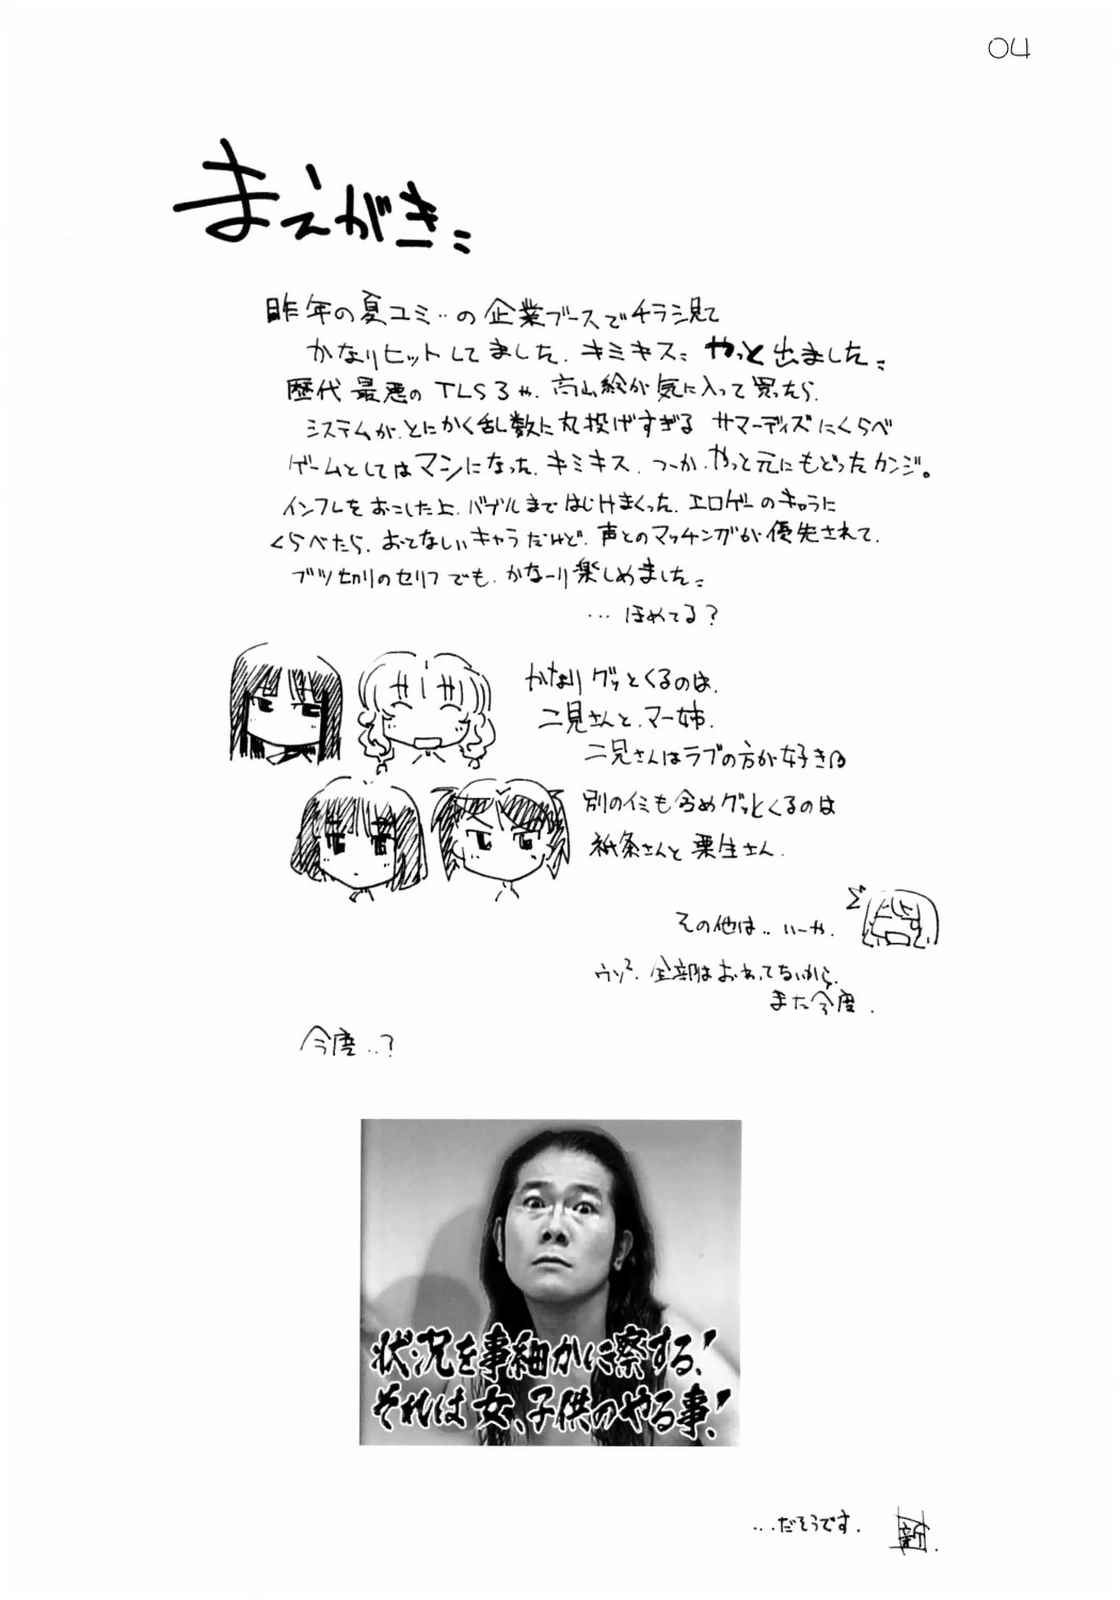 04
まえがき
昨年の夏コミ‥の企業ブースでチラシ見て
かなりヒットしてました、キミキス、やっと出ました
歴代最悪のTLS3や、高山絵が気に入って買ったら、
システムが、とにかく乱数に丸投げすぎるサマーデイズにくらべ
ゲームとしてはマシになった、キミキス、つーか、やっと元にもどったカンジ。
インフレをおこした上、バブルまではじけまくった、エロゲーのキャラに
くらべたら、おとなしいキャラだけど、声とのマッチングが優先されて、
ブツ切りのセリフでも、かなーり楽しめました
…ほめてる？
かなりグッとくるのは、
二見さんと、マー姉、
二見さんはラブの方が好き
別のイミも含めグッとくるのは
祇条さんと栗生さん、
その他は‥いーや、
ウソ²、全部はおわってないから、
また今度．
今度‥？
状況を事細かに察する！
それは女、子供のやる事！
…だそうです．
新